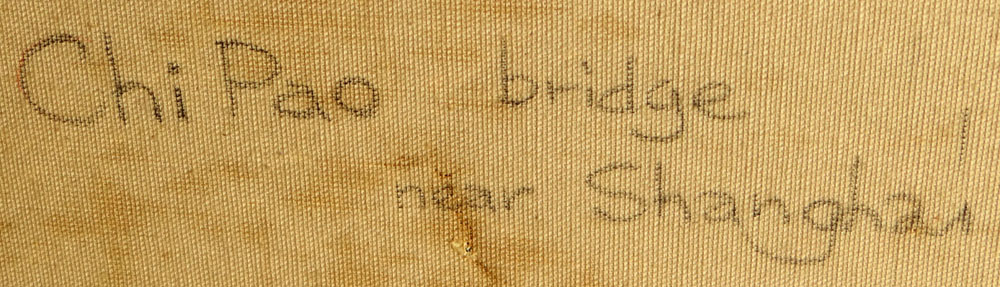 Chi Pao bridge
near Shanghai